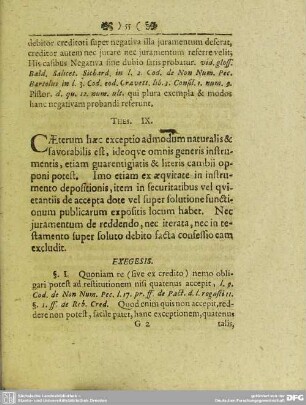 ) 51 (
debitor creditori super negativa illa juramentum deferat,
creditor autem nec jurare nec juramentum referre velit;
His casibus Negativa sine dubio satis probatur. vid. gloss.
Bald. Salicet. Sichard. in l. 2. Cod. de Non Num. Pec.
Bartolus in l. 3. Cod. eod. Cravett. lib. 1. Consil. 1. num. 9.
Pistor. d. qu. 22. num. ult. qui plura exempla & modos
hanc negativam probandi referunt.
THES. IX.
CÆterum hæc exceptio admodum naturalis &
favorabilis est, ideoqve omnis generis instru-
mentis, etiam guarentigiatis & literis cambii op-
poni potest. Imo etiam ex æqvitate in instru-
mento depositionis, item in securitatibus vel qvi-
etantiis de accepta dote vel super solutione functi-
onum publicarum expositis locum habet. Nec
juramentum de reddendo, nec iterata, nec in te-
stamento super soluto debito facta confessio eam
excludit.
EXEGESIS.
§. I. Quoniam re (sive ex credito) nemo obli-
gari potest ad restitutionem nisi quatenus accepit, l. 9.
Cod. de Non Num. Pec. l. 17. pr. ff. de Pact. d. l. rogasti 11.
§. 1. ff. de Reb. Cred. Quod enim quis non accepit, red-
dere non potest, facile patet, hanc exceptionem, quatenus
G 2 talis,